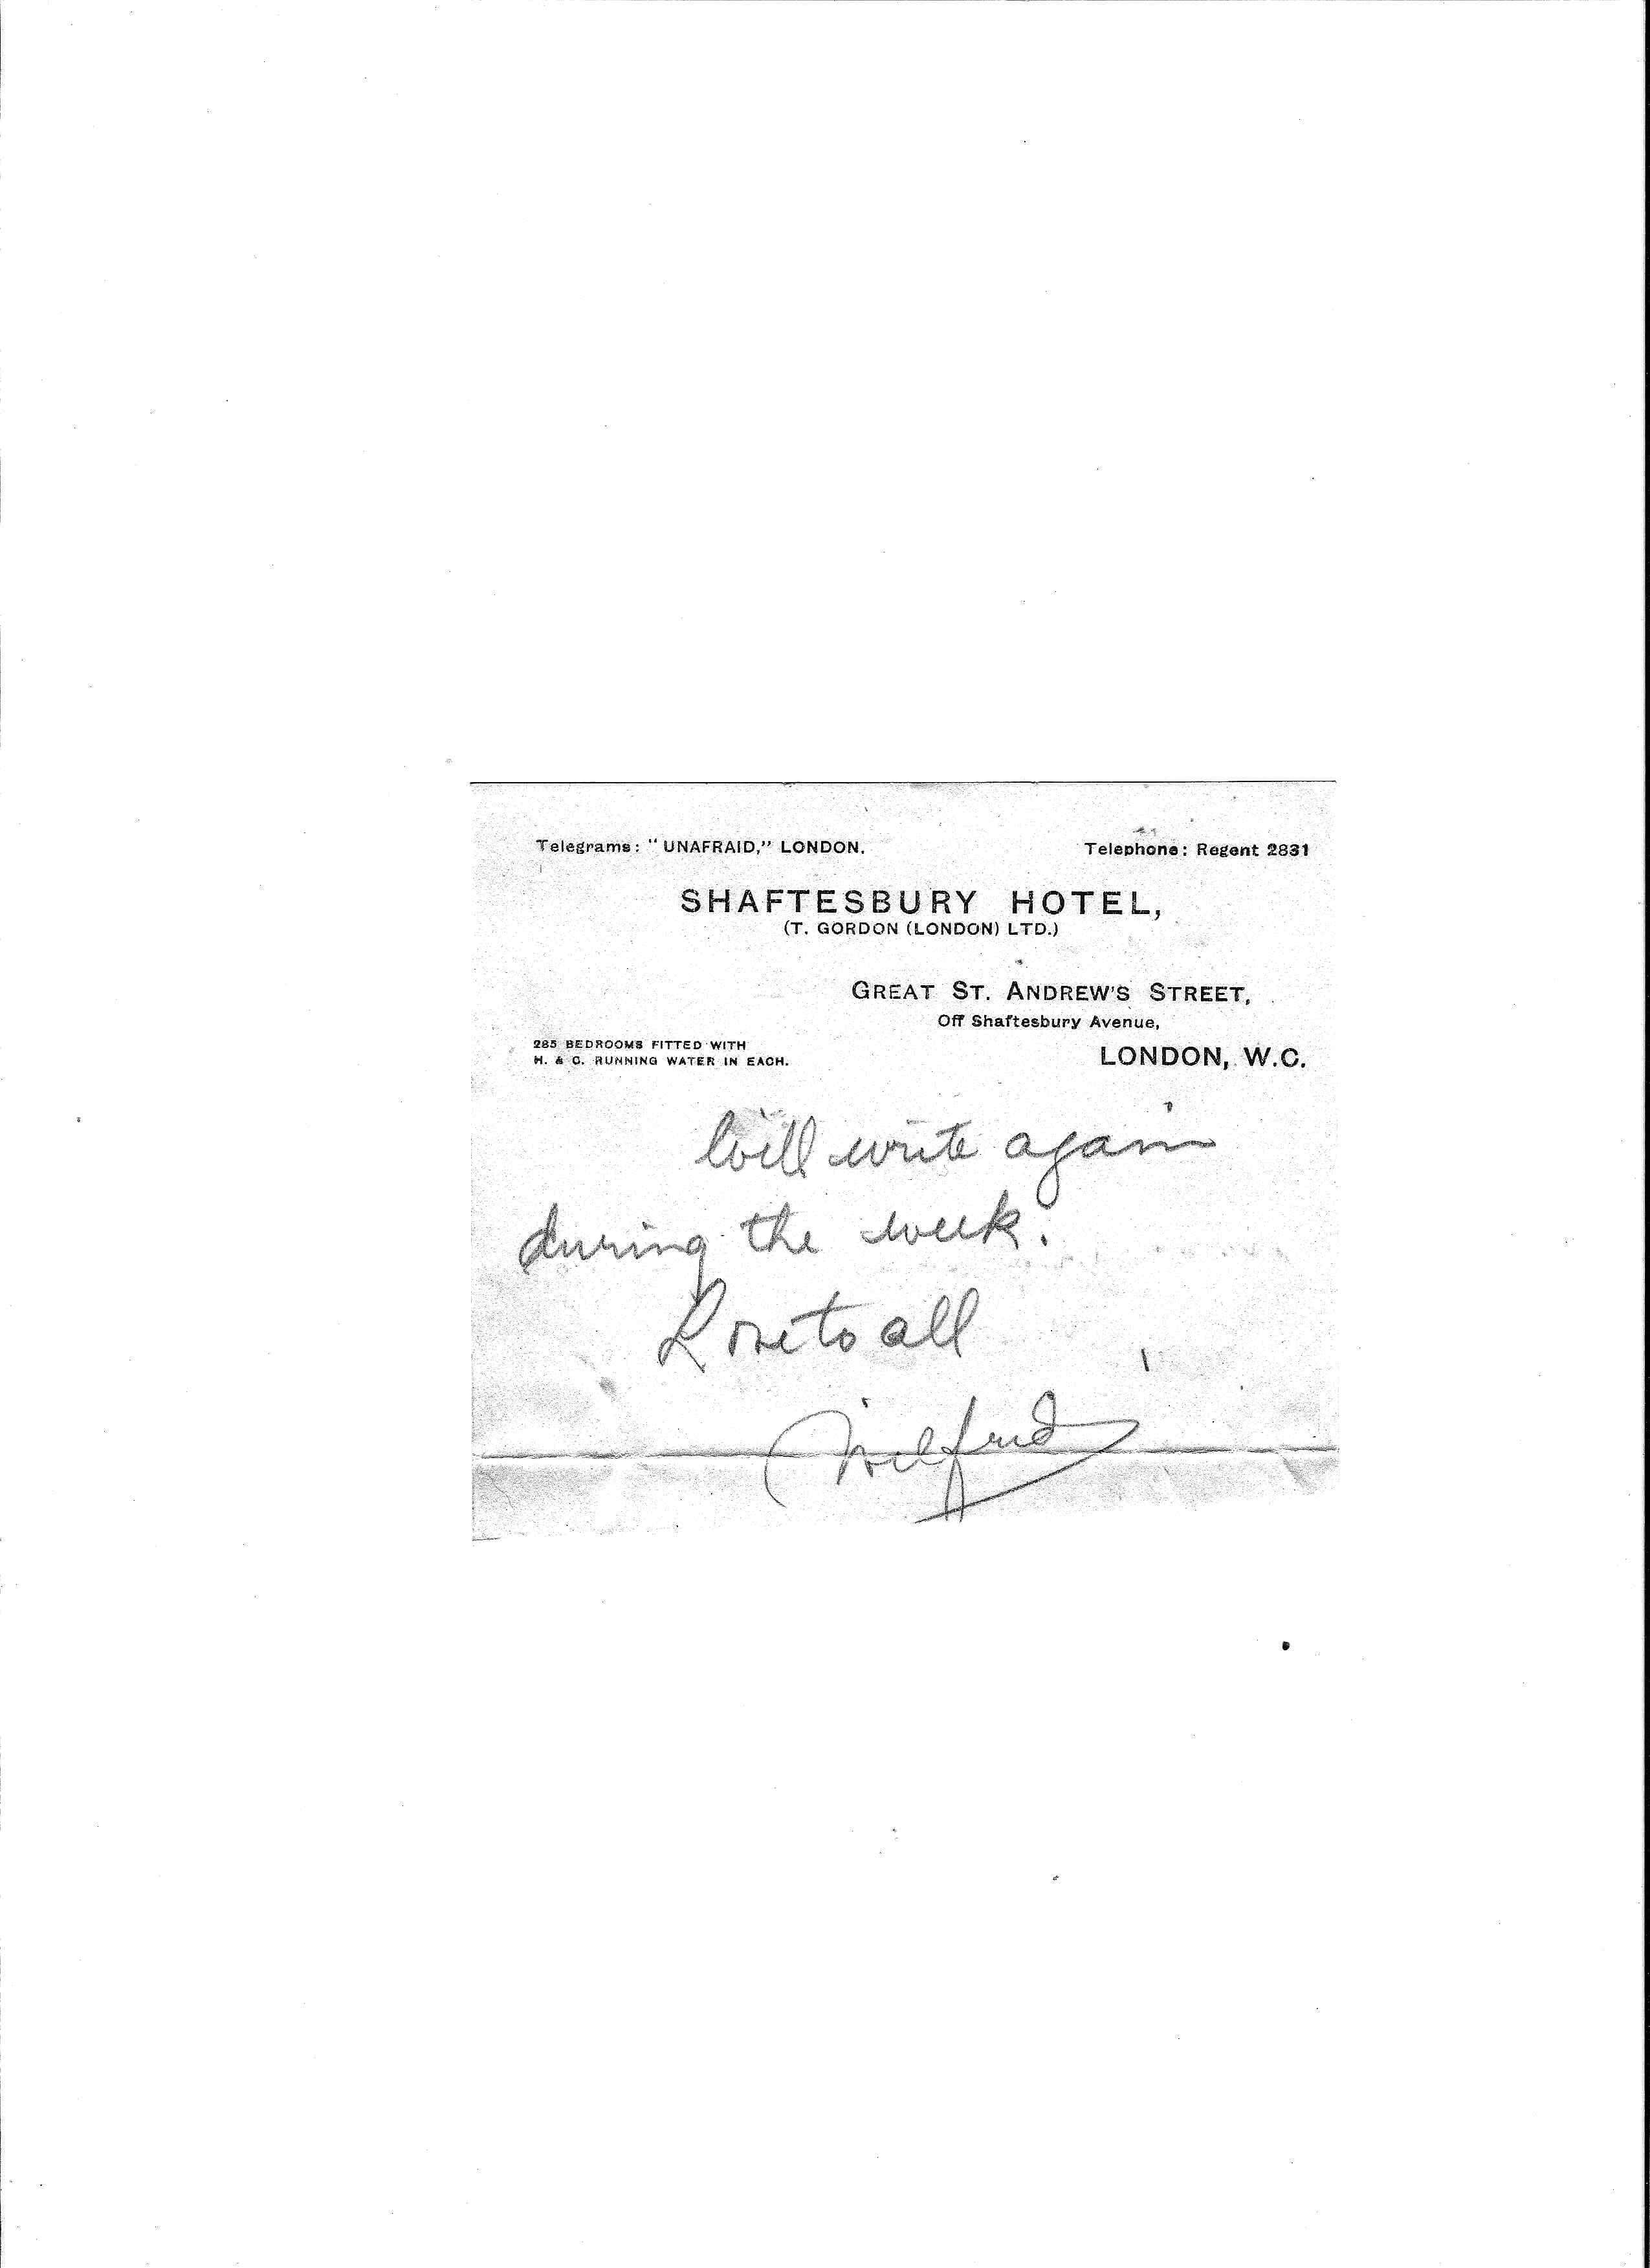 Telegrams: "UNAFRAID," LONDON. Telephone: Regent 2831
SHAFTESBURY HOTEL,
(T. GORDON (LONDON) LTD.)
GREAT ST. ANDREW'S STREET,
Off Shaftesbury Avenue,
285 BEDROOMS FITTED WITH
H. & C. RUNNING WATER IN EACH.
LONDON, W.C.
Will write again
during the week.
Love to all
Wilfrid